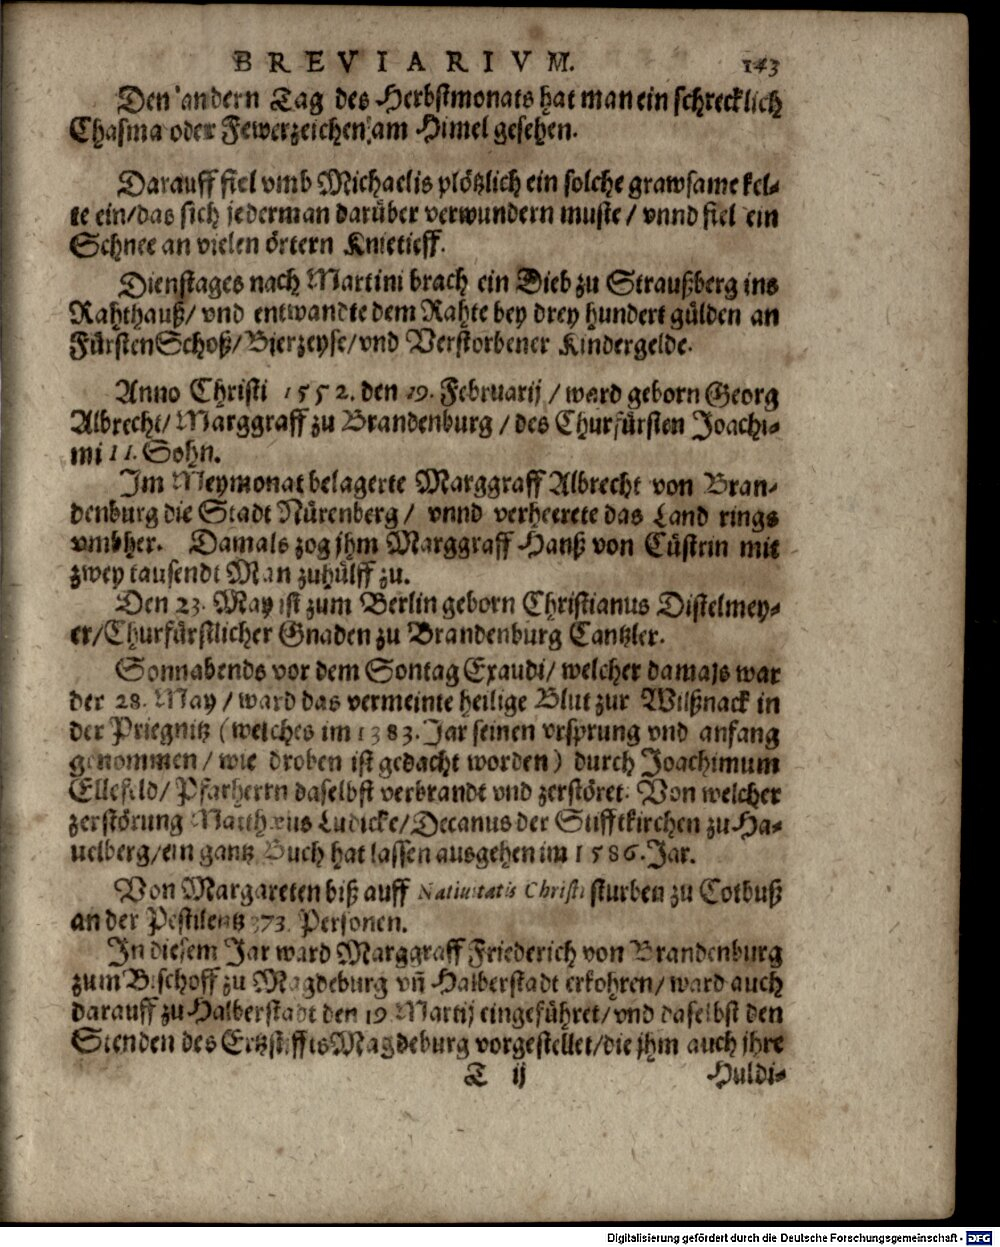 BREVIARIVM. 143
Den andern Tag des Herbstmonats hat man ein schrecklich
Chasma oder Fewerzeichen am Himel gesehen.
Darauff fiel vmb Michaelis plötzlich ein solche grawsame kel-
te ein/das sich jederman darüber verwundern muste/ vnnd fiel ein
Schnee an vielen örtern Knietieff.
Dienstages nach Martini brach ein Dieb zu Straußberg ins
Rahthauß/ vnd entwandte dem Rahte bey drey hundert gülden an
Fürsten Schoß/ Bierzeyse/ vnd Verstorbener Kindergelde.
Anno Christi 1552. den 19. Februarij/ ward geborn Georg
Albrecht/ Marggraff zu Brandenburg/ des Churfürsten Joachi-
mi II. Sohn.
Im Meymonat belagerte Marggraff Albrecht von Bran-
denburg die Stadt Nürenberg/ vnnd verheerete das Land rings
vmbher. Damals zog jhm Marggraff Hanß von Cüstrin mit
zwey tausendt Man zuhülff zu.
Den 23. May ist zum Berlin geborn Christianus Distelmey-
er/Churfürstlicher Gnaden zu Brandenburg Cantzler.
Sonnabends vor dem Sontag Exaudi/ welcher damals war
der 28. May/ ward das vermeinte heilige Blut zur Wilßnack in
der Priegnitz (welches im 1383. Jar seinen vrsprung vnd anfang
genommen/ wie droben ist gedacht worden) durch Joachimum
Ellefeld/ Pfarherrn daselbst verbrandt vnd zerstöret. Von welcher
zerstörung Matthæus Ludicke/ Decanus der Stifftkirchen zu Ha-
uelberg/ein gantz Buch hat lassen ausgehen im 1586. Jar.
Von Margareten biß auff Natiuitatis Christi sturben zu Cotbuß
an der Pestilentz 373. Personen.
In diesem Jar ward Marggraff Friederich von Brandenburg
zum Bischoff zu Magdeburg vñ Halberstadt erkohren/ ward auch
darauff zu Halberstadt den 19 Martij eingeführet/ vnd daselbst den
Stenden des Ertzstiffts Magdeburg vorgestellet/die jhm auch jhre
T ij Huldi-
Digitalisierung gefördert durch die Deutsche Forschungsgemeinschaft - DFG